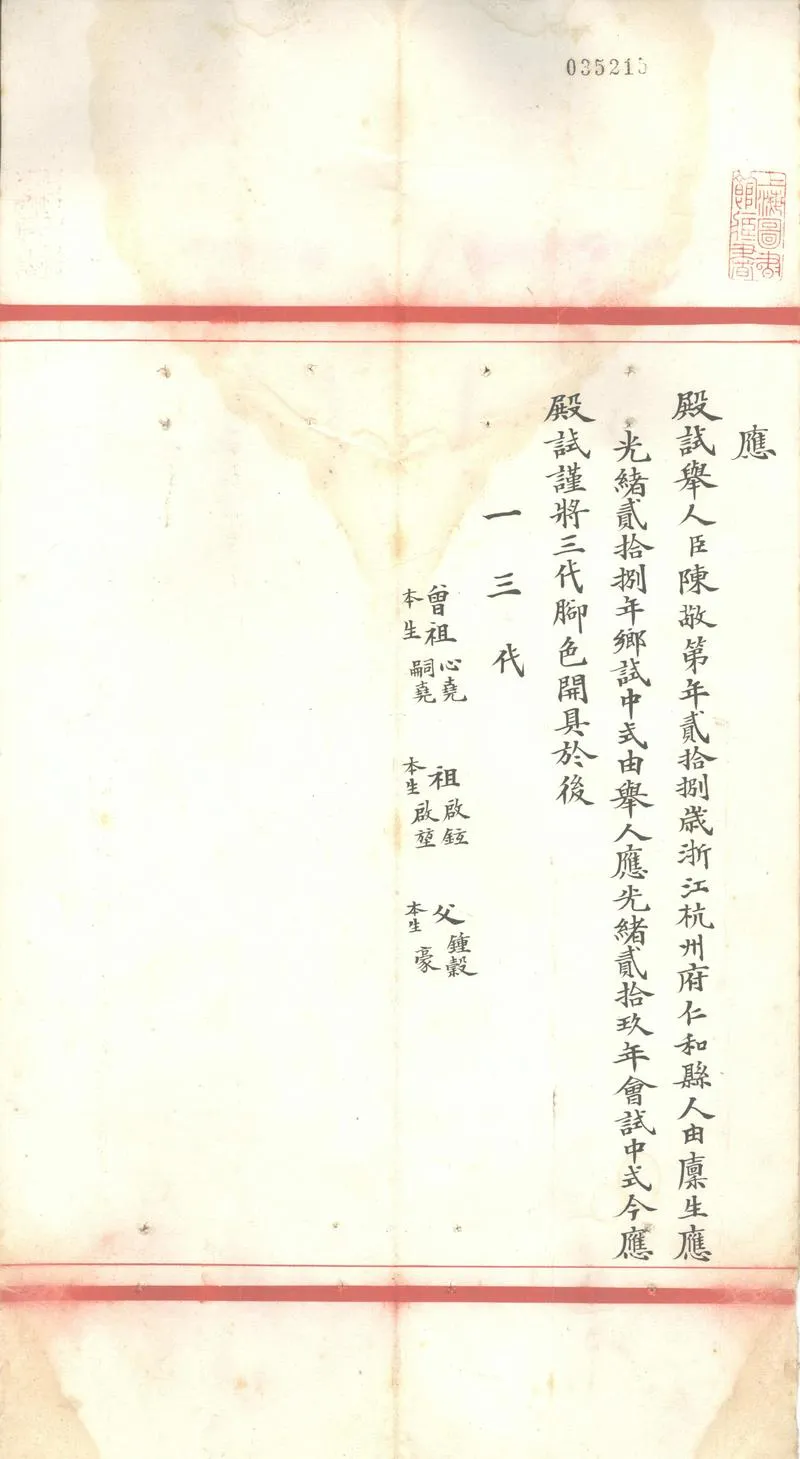 035215
上海圖書館藏書
應
殿試舉人臣陳敬第年貳拾捌歲浙江杭州府仁和縣人由廩生應
光緒貳拾捌年鄉試中式由舉人應光緒貳拾玖年會試中式今應
殿試謹將三代腳色開具於後
一三代
曾祖心堯 祖啟鈺 父鍾穀
本生嗣堯 本生啟堃 本生豪